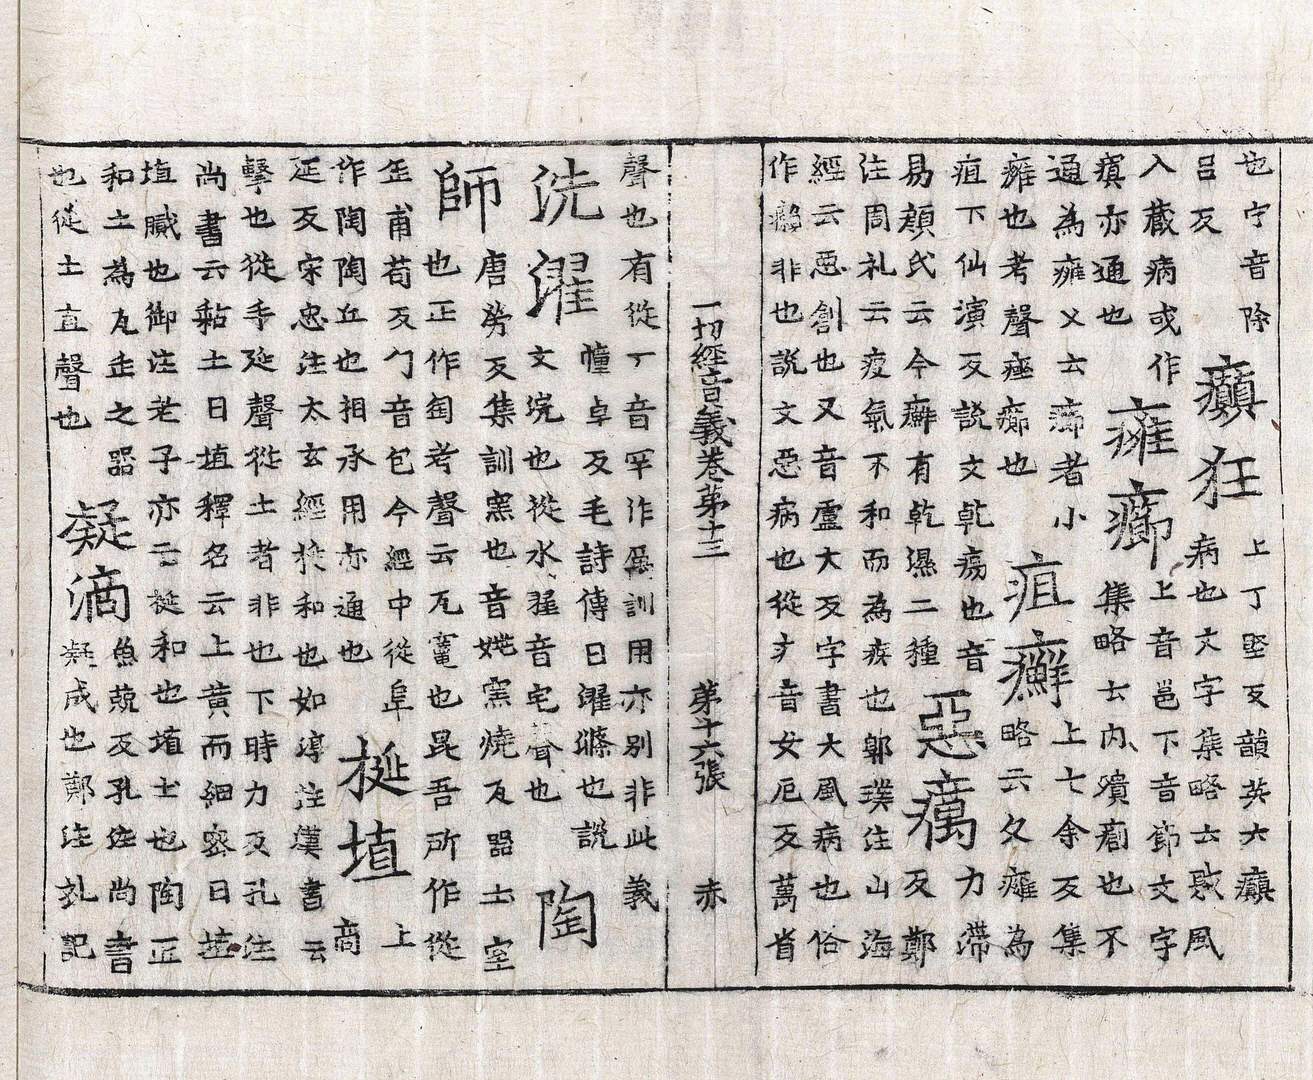 也宁音除
呂反
癲狂
上丁堅反韻英云癲
病也文字集略云賊風
入藏病或作
瘨亦通也
癰癤
上音邕下音節文字
集略云內潰㿈也不
通為癰又云癤者小
癰也考聲痤癤也
疽癬
上七余反集
略云久癰為
疽下仙演反說文乾瘍也音
易顏氏云今癬有乾濕二種
惡癘
力滯
反鄭
注周礼云疫氣不和而為疾也郭璞注山海
經云惡創也又音盧大反字書大風病也俗
作癩非也說文惡病也從疒音女厄反萬省
一切經音義卷第十三 第廿六張 赤
聲也有從丁音罕作訓用亦別非此義
洗濯
幢卓反毛詩傳曰濯滌也說
文浣也從水翟音宅聲也
陶
師
唐勞反集訓窯也音姚窯燒瓦器土室
也正作匋考聲云瓦竈也昆吾所作從
缶甫苟反勹音包今經中從阜
作陶陶丘也相承用亦通也
埏埴
上
商
延反宋忠注太玄經挻和也如淳注漢書云
擊也從手延聲從土者非也下時力反孔注
尚書云黏土曰埴釋名云土黃而細密曰埴
埴膩也御注老子亦云埏和也埴土也陶匠
和土為瓦缶之器
也從土直聲也
凝滴
魚兢反孔注尚書
凝成也鄭注礼記